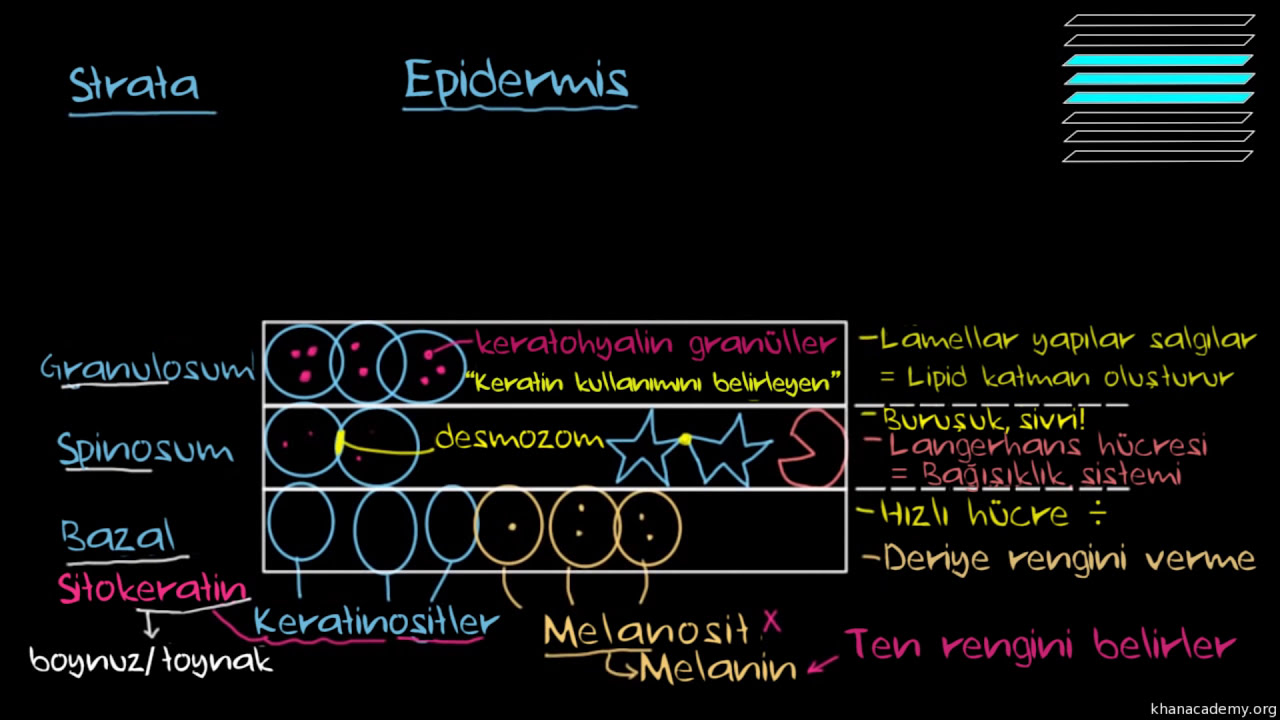 Strata
Epidermis
Granulosum
keratohyalin granüller
"Keratin kullanımını belirleyen"
-Lamellar yapılar salgılar
= Lipid katman oluşturur
Spinosum
desmozom
-Buruşuk, sivri!
-Langerhans hücresi
= Bağışıklık sistemi
Bazal
-Hızlı hücre ÷
-Deriye rengini verme
Sitokeratin
boynuz/toynak
Keratinositler
Melanosit x
Melanin
Ten rengini belirler
khanacademy.org